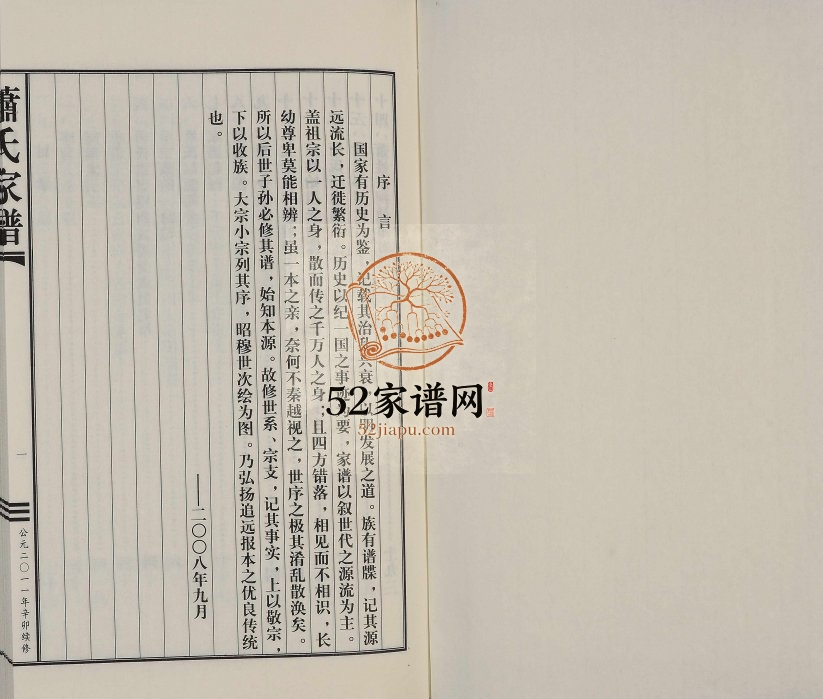 序言
国家有历史为鉴，记载其治乱兴衰，以明发展之道。族有谱牒，记其源
远流长，迁徙繁衍。历史以纪一国之事迹为要，家谱以叙世代之源流为主。
盖祖宗以一人之身，散而传之千万人之身；且四方错落，相见而不相识，长
幼尊卑莫能相辨；虽一本之亲，奈何不秦越视之，世序之极其淆乱散涣矣。
所以后世子孙必修其谱，始知本源。故修世系、宗支，记其事实，上以敬宗，
下以收族。大宗小宗列其序，昭穆世次绘为图。乃弘扬追远报本之优良传统
也。
——二〇〇八年九月
萧氏家谱
一
公元二〇一一年辛卯续修
52家谱网
52jiapu.com